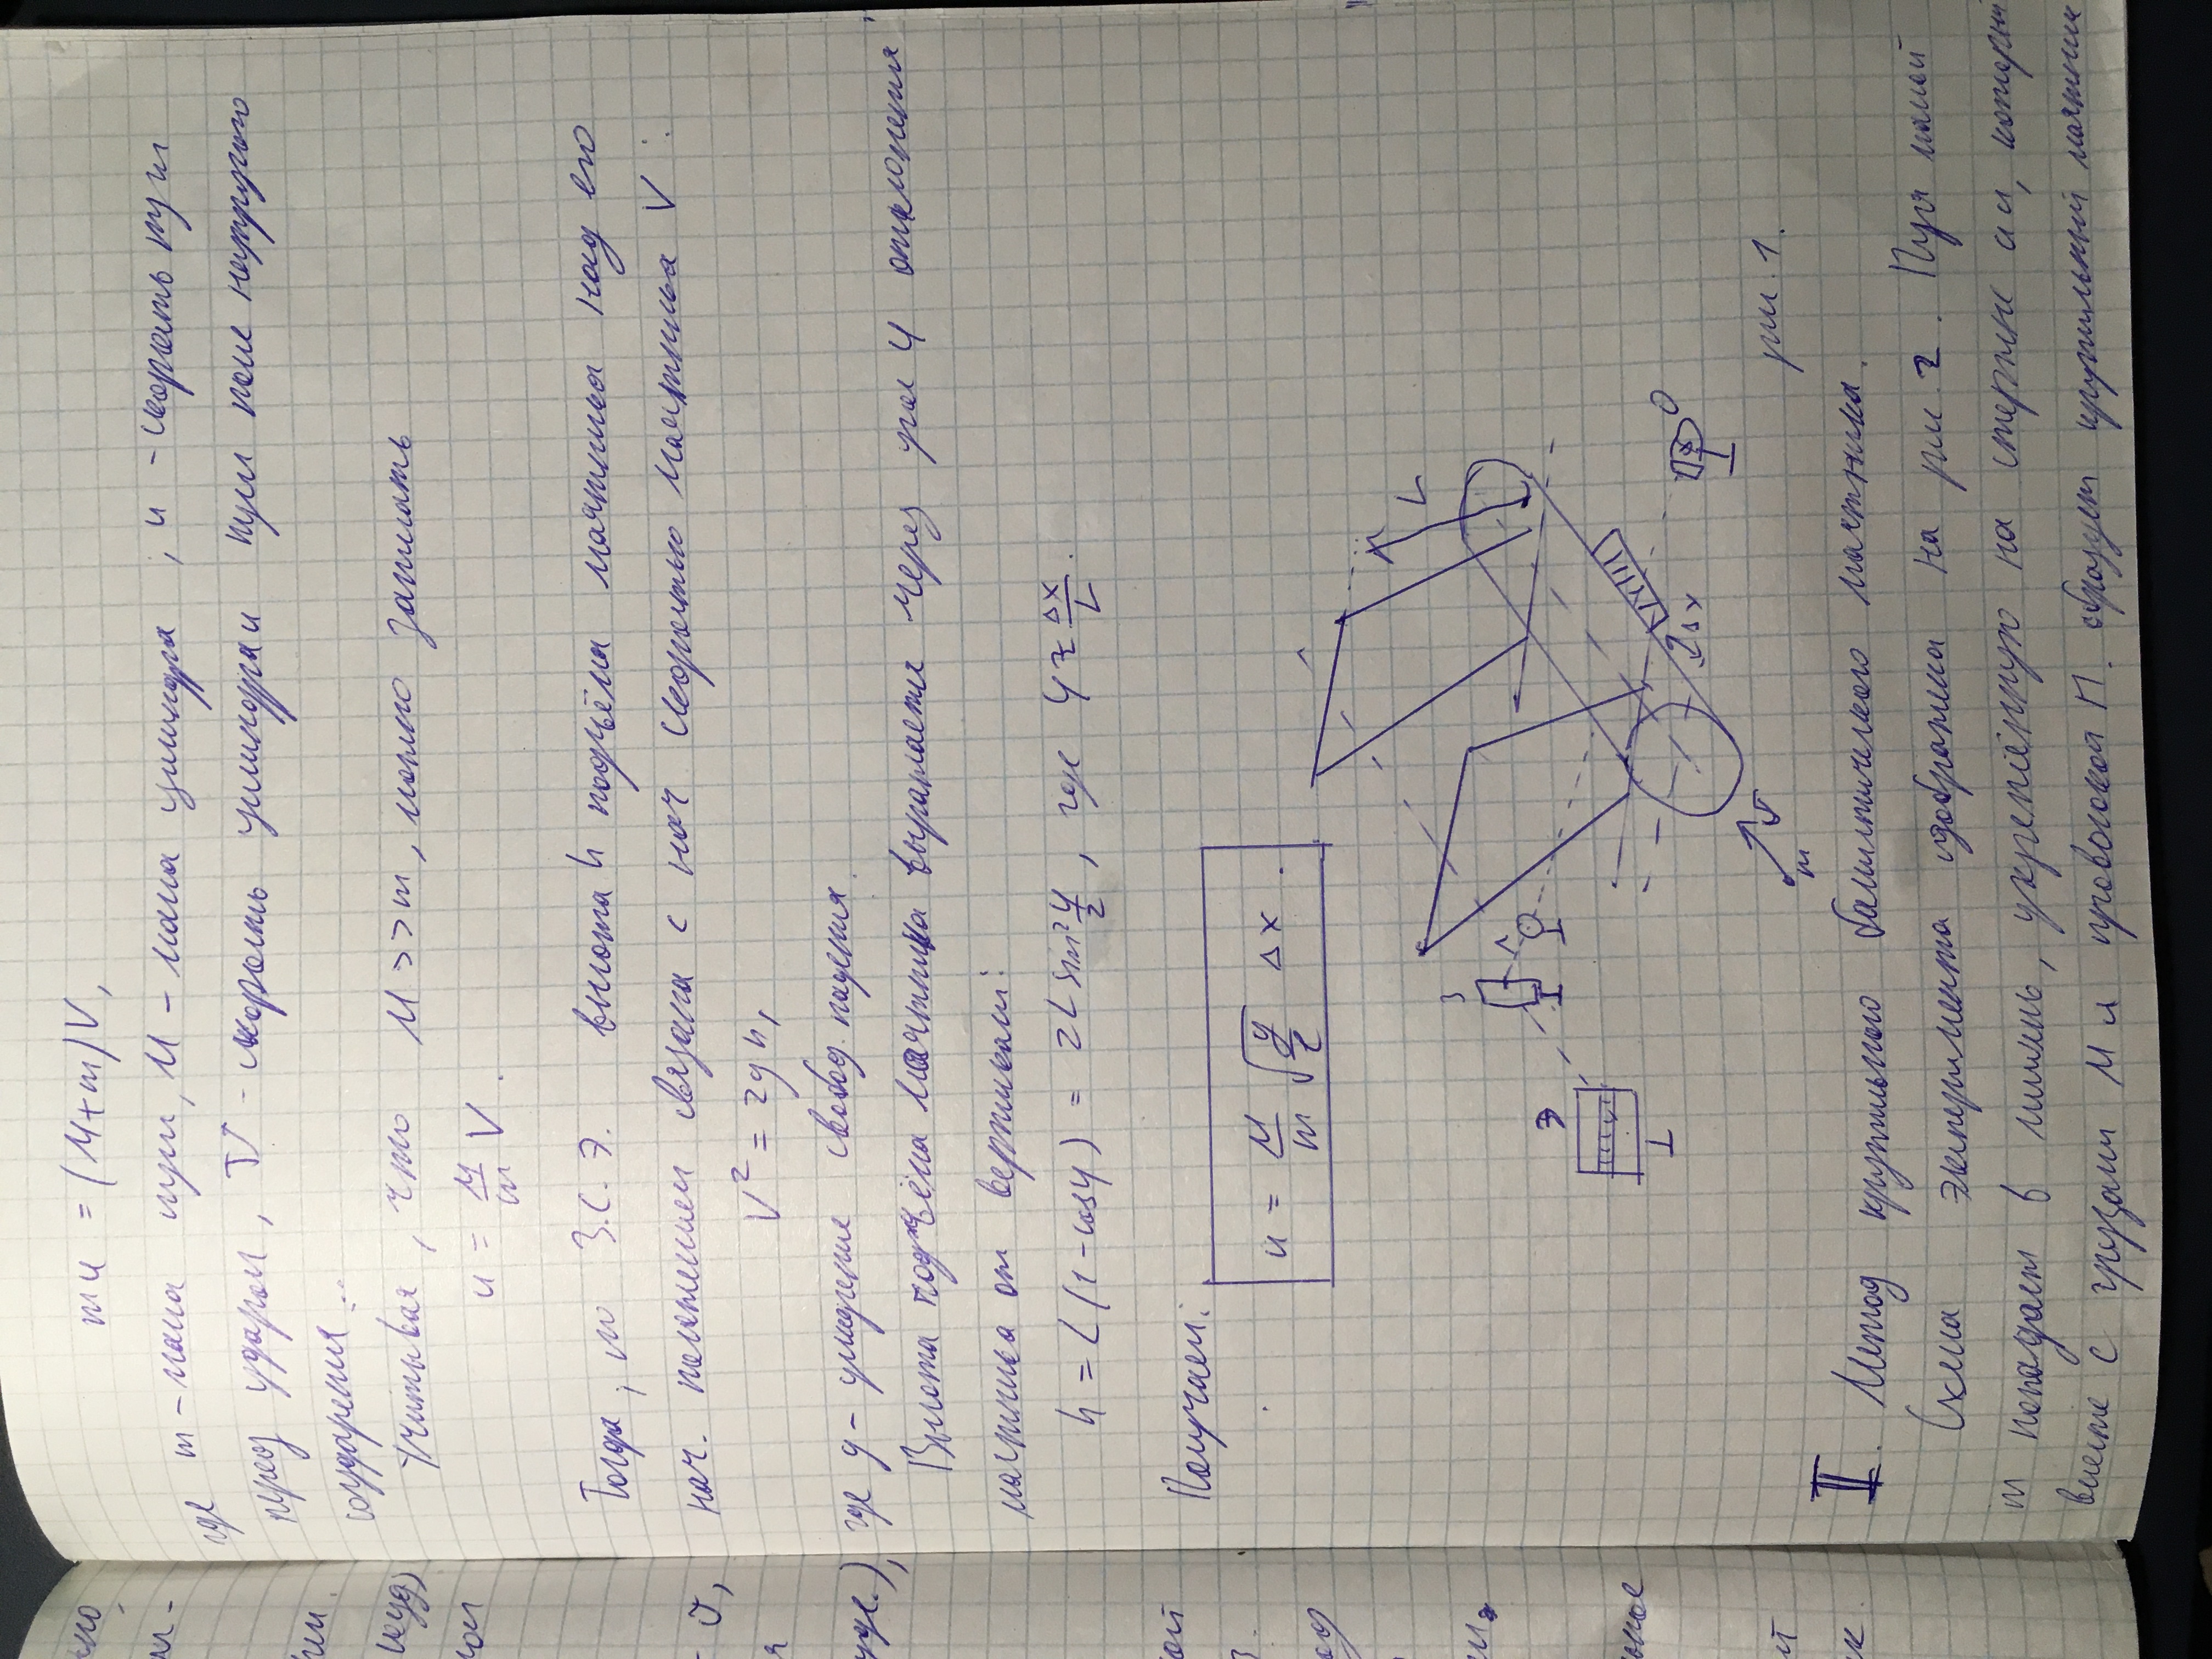 mu = (M+m)V,
где m - масса пули, M - масса цилиндра, u - скорость пули
перед ударом, V - скорость цилиндра и пули после неупругого
соударения..
Учитывая, что M >> m, можно записать
u = M/m V.
Тогда, по З.С.Э. высота h подъёма маятника над его
нач. положением связана с нач скоростью маятника V:
V² = 2gh,
где g - ускорение свобод. падения.
Высота подъёма маятника выражается через угол φ отклонения
маятника от вертикали:
h = L(1-cosφ) = 2L sin² φ/2, где φ ≈ Δx/L.
Получаем:
u = M/m √(g/L) Δx.
L
З
Л
Э
О
Δx
V
m
рис. 1.
II. Метод крутильного баллистического маятника.
Схема эксперимента изображена на рис. 2. Пуля массой
m попадает в мишень, укреплённую на стержне aa, который
вместе с грузами M и проволокой П. образует крутильный маятник